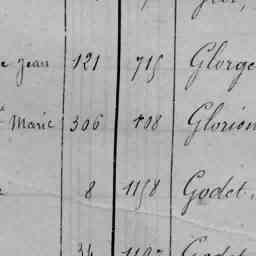 Jean 121 715 Glorge
Marie 306 408 Glorien
8 1158 Godet,
34 Godet